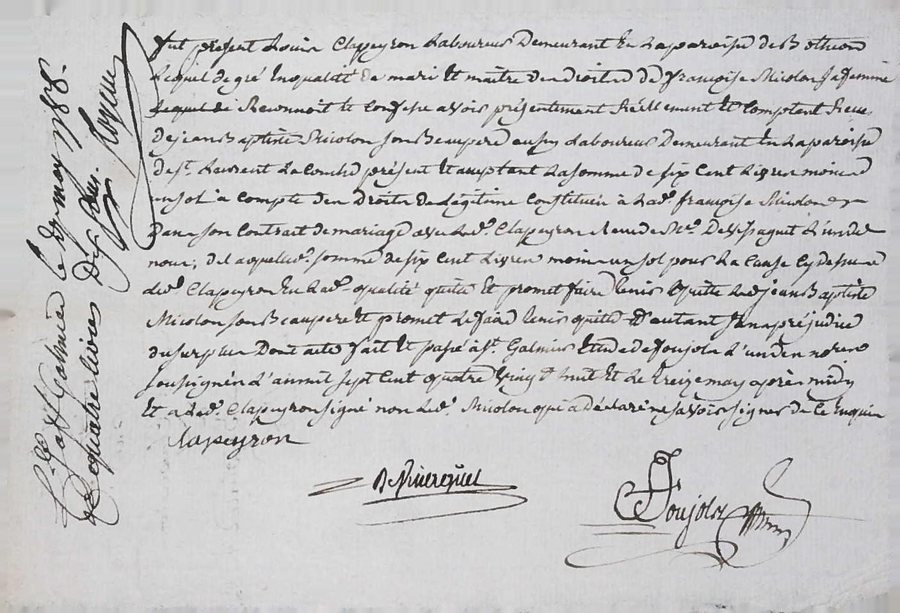 fut présent Louis Clapeyron Laboureur Demeurant En La paroisse de Botheon
Lequel de gré En qualité de mari Et maitre des droits de françoise Micolon sa femme
Lequel de Reconnoit et Confesse avoir présentement Réellement Et Comptant Receu
de jean Baptiste Micolon son Beaupere aussy Laboureur Demeurant En La paroisse
de st. Laurent La Comhe présent Et acceptant La somme de six Cent Livres moins
un sol à Compte des Droits de Légitime Constitués à Lade. françoise Micolon
Dans son Contrat de mariage avec Led. Clapeyron Receu de Me. L'un de
nous, de Laquelle somme de six Cent Livres moins un sol pour La Cause Cy dessus
Led. Clapeyron En Lade. qualité quitte Et promet faire tenir quitte Led. jean Baptiste
Micolon son Beaupere Et promet Le faire tenir quitte D'autant sans préjudice
du surplus Dont acte fait Et passé à st. Galmier Etude de Poujols L'un des nores.
soussignés L'an mil sept Cent quatre vingt huit Et Le treize may après midy
Et a Led. Clapeyron signé non Led. Micolon qui a Déclaré ne savoir signer de Ce Enquis
Clapeyron
Poujols
St. Galmier le may 1788.
quatre livres